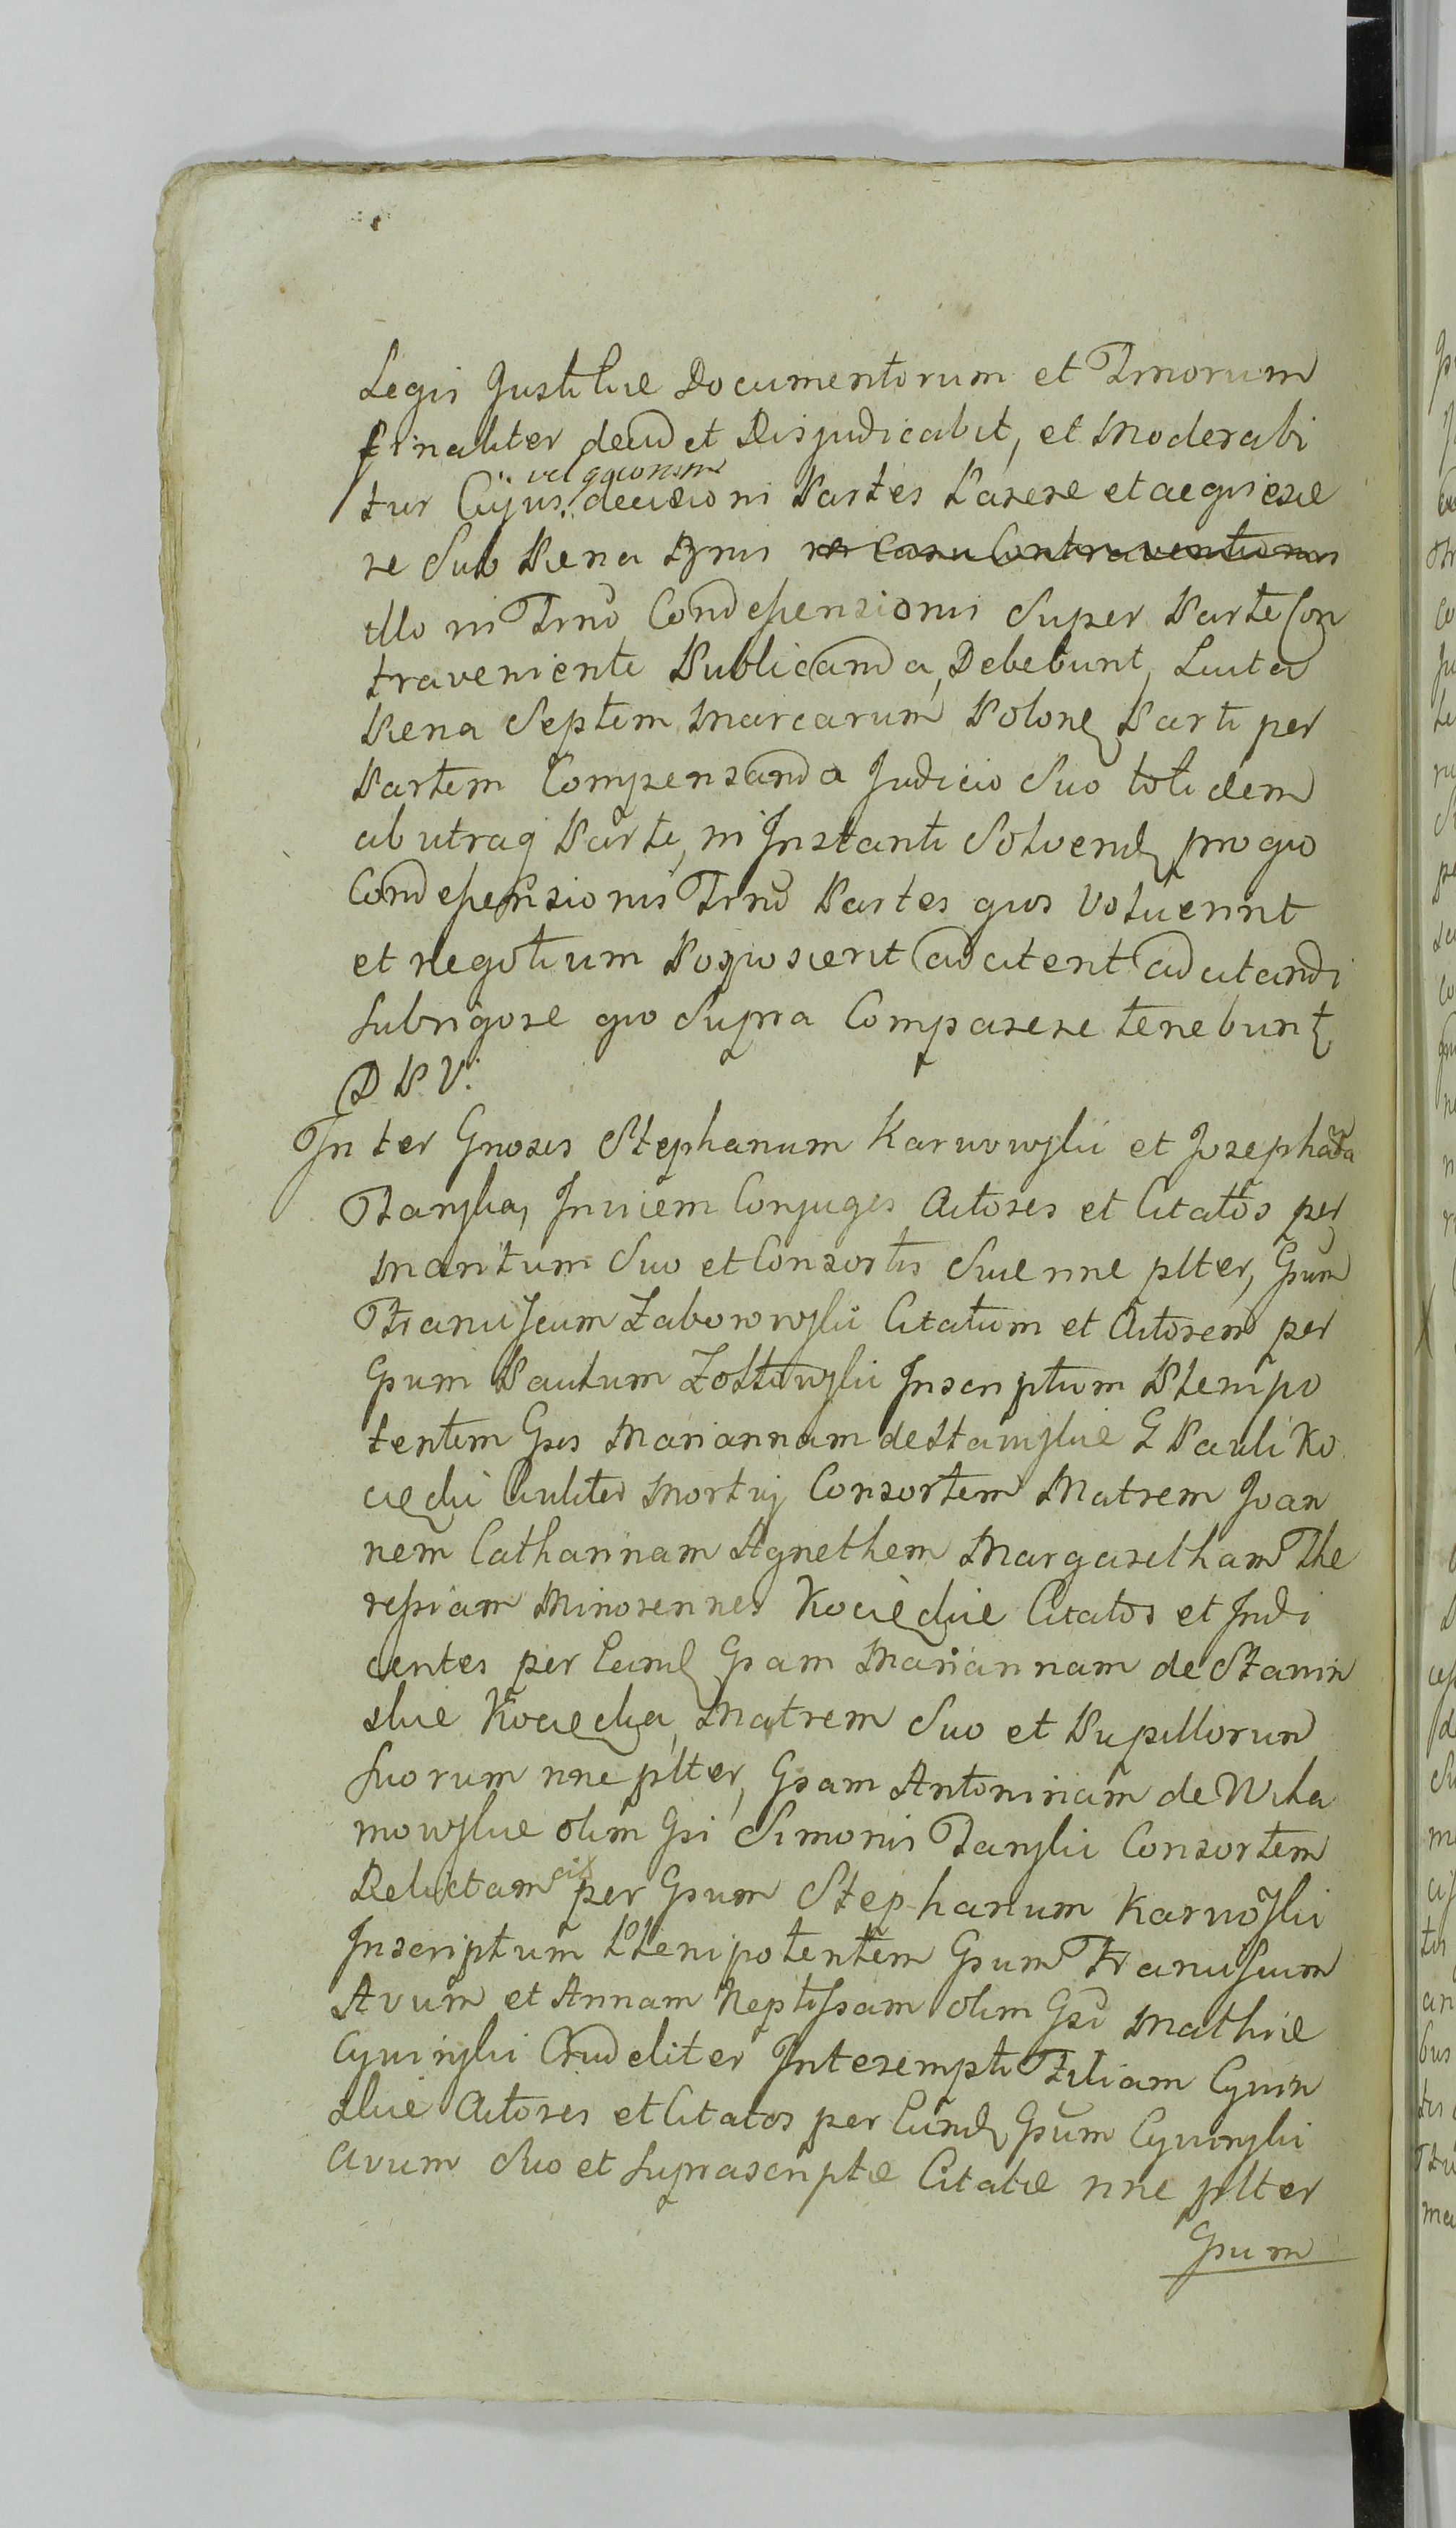 Legis Justitiæ Documentorum et Trnorum
finaliter decid et Disjudicabit, et Moderabi
tur Cujus decisioni vel qquonsmi Partes Parere et acquiesce
re Sub Pœna Bnis in Casu Contraventionis
illo in Trno Condescensionis Super Parte Con
traveniente Publicanda, Debebunt, Luita
Pœna Septem Marcarum Polonq Parti per
Partem Compensanda Judicio Suo totidem
ab utraq Parte, in Instanti Solvend, pro quo
Condescensionis Trno Partes quos Voluerint
et negotium Poposcerit adcitent adcitandi
sub rigore quo Supra Comparere tenebunt
D P V.
Inter Gnosos Stephanum Karwowski et Josephata
Danska, Invicem Conjuges Actores et Citatos per
Maritum Suo et Consortis Suæ nne plter, Gsum
Franciscum Zaborowski Citatum et Actorem per
Gsum Paulum Zoltowski Inscriptum Plenipo
tentem Gses Mariannam de Staniskie G Pauli Ko
ciecki Civiliter Mortuj Consortem Matrem Joan
nem Catharinam Agnethem Margaretham The
ressiam Minorennes Kocieckie Citatos et Indi
centes per Eand Gsam Mariannam de Stanin
skie Kociecka, Matrem Suo et Pupillorum
suorum nne plter, Gsam Antoninam de Wila
mowskie olim Gsi Simonis Danski Consortem
Relictam cit per Gsum Stephanum Karwoski
Inscriptum Plenipotentem Gsum Franciscum
Avum et Annam Neptissam olim Gsi Mathiæ
Cywinski Crudeliter Interempti Filiam Cywin
skie Actores et Citatos per Eund Gsum Cywinski
Avum Suo et suprascriptæ Citatæ nne plter
Gsum